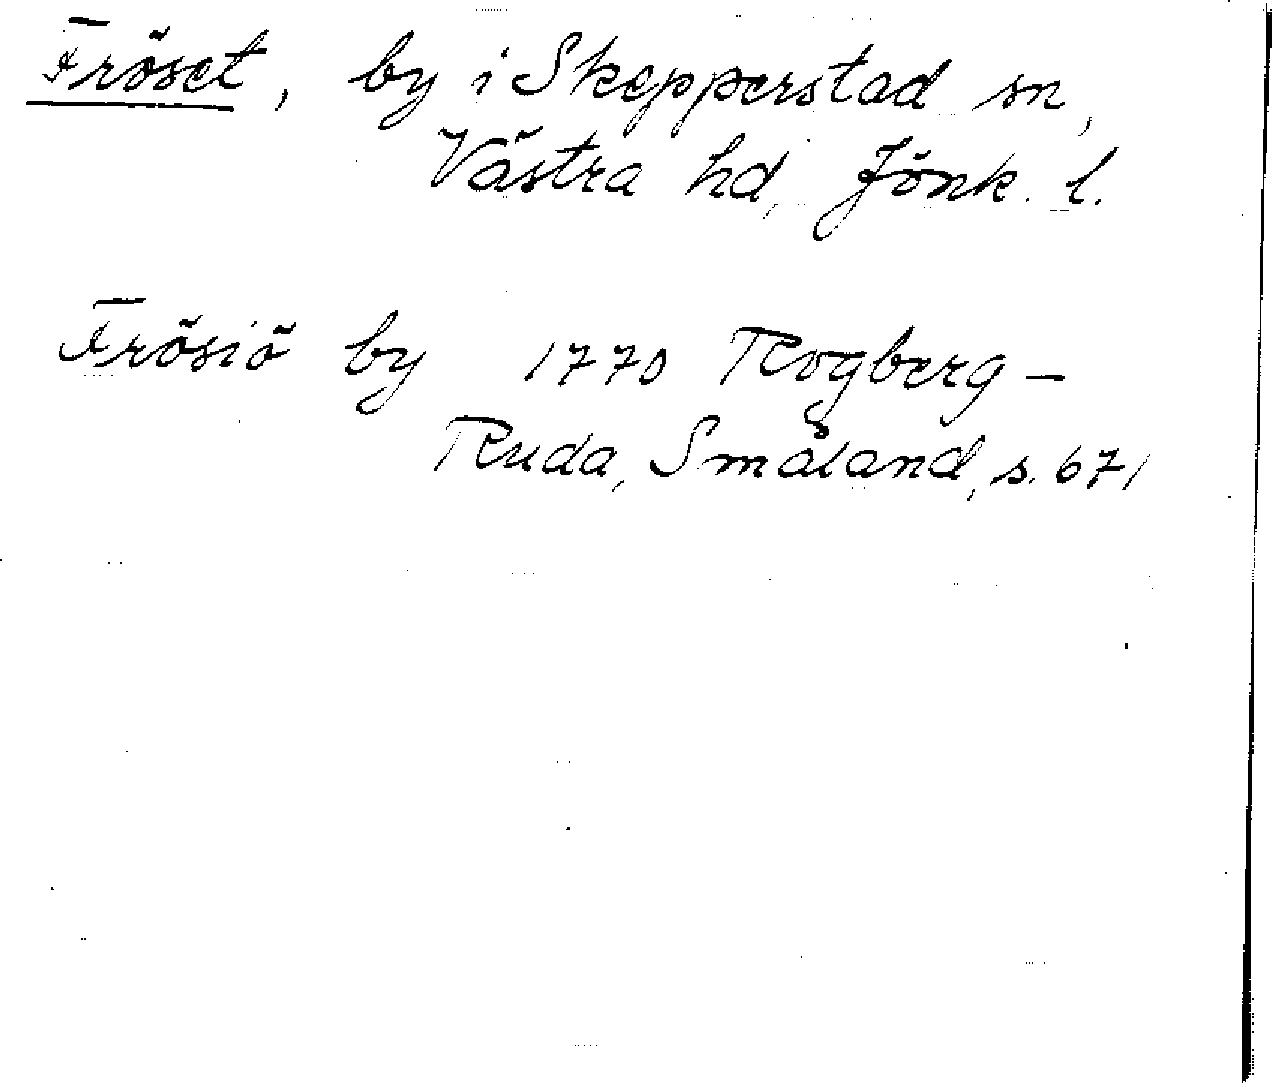 Fröset, by i Skepperstad sn,
Västra hd, Jönk. l.
Frösiö by 1770 Rogberg-
Ruda, Småland, s. 671